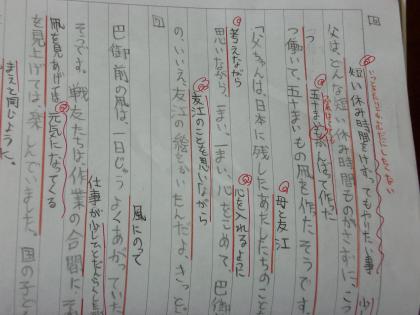 短い休み時間をけずってもやりたい事
父は、どんな短い休み時間ものがさずに、こつこ
五十まい
がんばって作た
つ働いて、五十まいもの凧を作た、そうです。
母と友江
「父ちゃんは、日本に残したあたしたちのこと
考えながら
心を入れるように
思いながら、一まい、一まい、心をこめて、巴御
友江のことを思いながら
の、いいえ、友江の絵をかいたんだよ、きっと。
風にのって
巴御前の凧は、一日じゅうよくあがっていた
仕事が少しひとだんらく
そうです。戦友たちは、作業の合間に、そ
凧を見あげては、元気になってくる
を見上げては、楽しんでいました。国の子ど
まえと同じように。